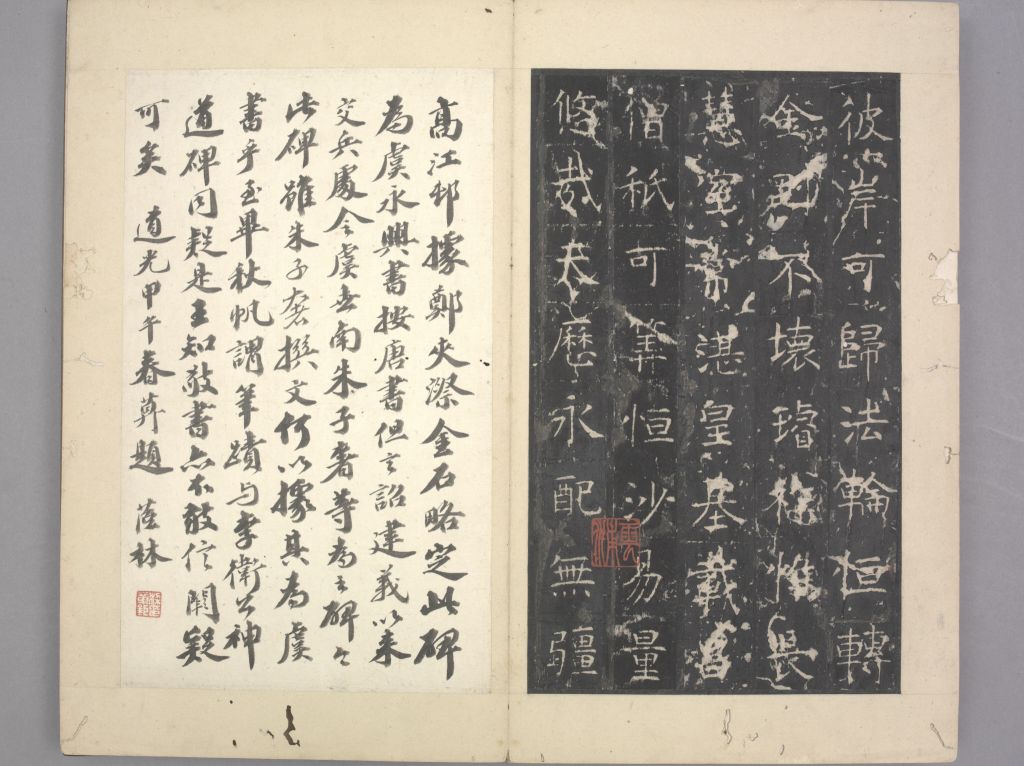 彼岸可歸法輪恒轉
金剛不壞璿極惟長
慧室常湛皇基載昌
僧祇可算恒沙易量
悠哉大曆永配無疆
高江邨據鄭夾漈金石略定此碑
為虞永興書按唐書但言詔建義以來
交兵處令虞世南朱子奢等為之碑
此碑雖朱子奢撰文何以據其為虞
書乎至畢秋帆謂筆蹟与李衛公神
道碑同疑是王知敬書亦不敢信闕疑
可矣 道光甲午春蓱題 蓮林